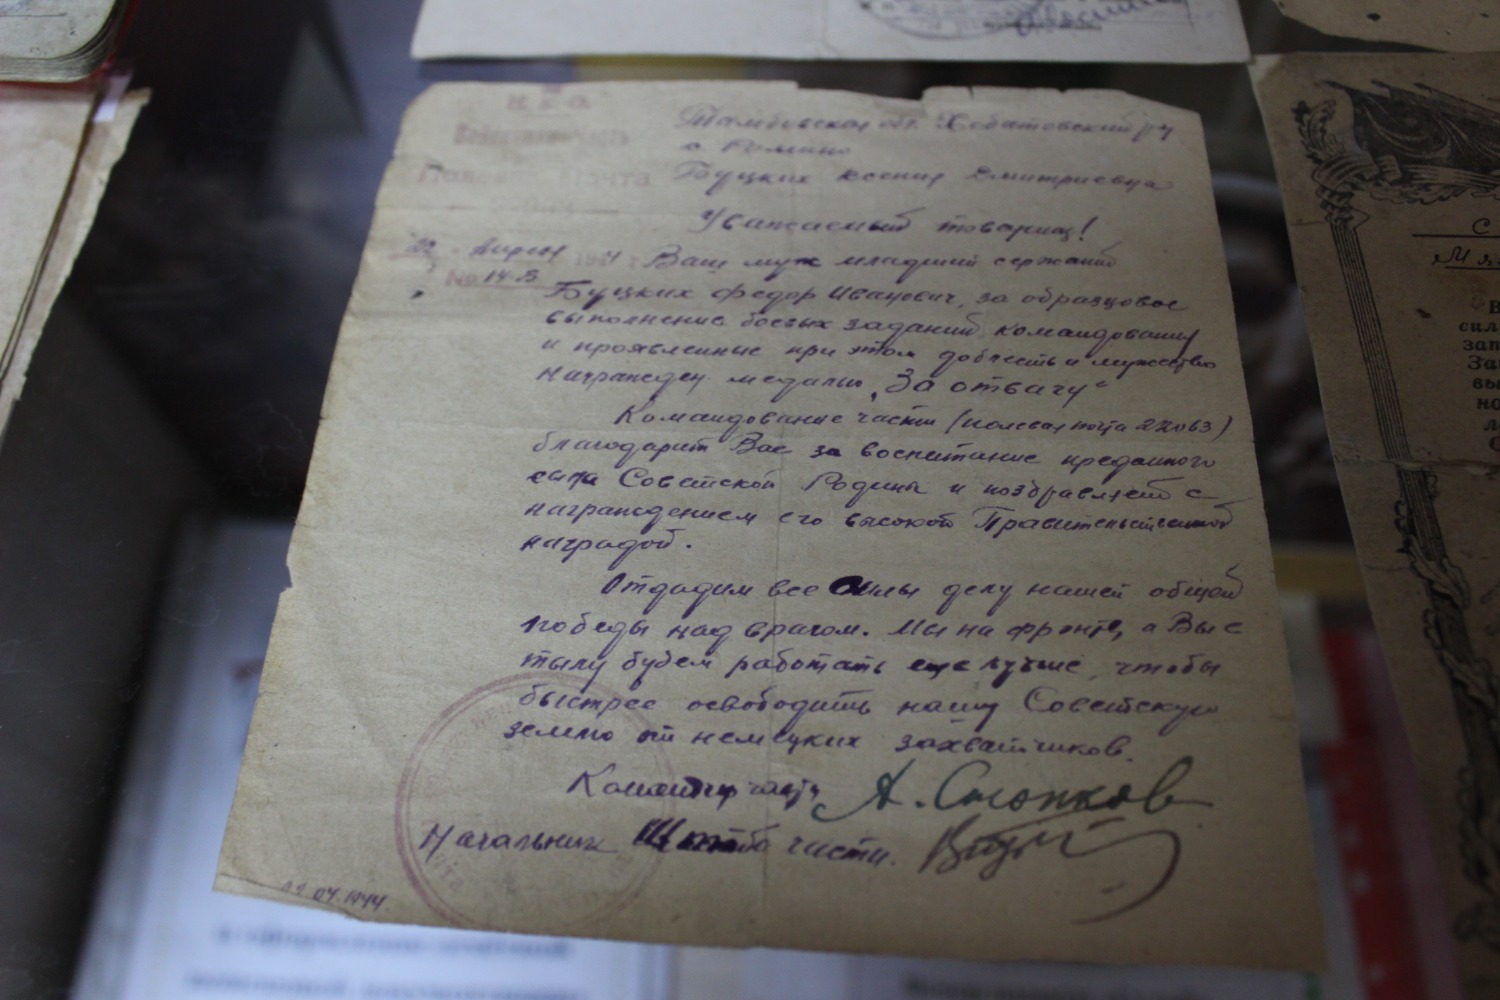 Н К О
Войсковая часть
Полевая Почта
Тамбовская обл. Хоботовский р-н
с. Ромино
Буцких Ксения Дмитриевна
Уважаемый товарищ!
22 Апреля 1944 г.
№ 14-5
Ваш муж младший сержант
Буцких Федор Иванович, за образцовое
выполнение боевых заданий командования
и проявленные при этом доблесть и мужество
награжден медалью „За отвагу"
Командование части (полевая почта 22063)
благодарит Вас за воспитание преданного
сына Советской Родины и поздравляет с
награждением его высокой Правительственной
наградой.
Отдадим все силы делу нашей общей
победы над врагом. Мы на фронте, а Вы с
тылу будем работать еще лучше, чтобы
быстрее освободить нашу Советскую
землю от немецких захватчиков.
Командир части
Начальник Штаба части.
04.1944.
С
В
сил
зап
За
вы
но